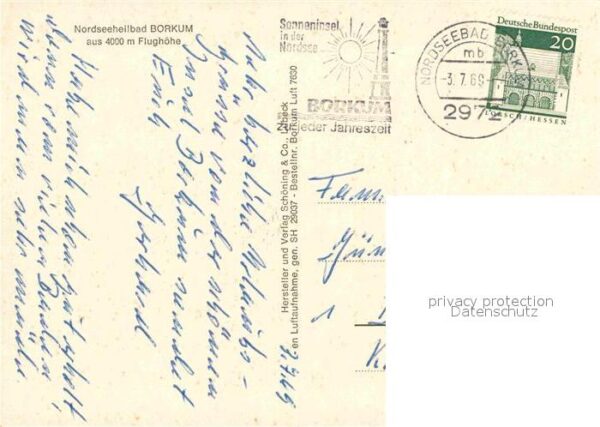 Nordseeheilbad BORKUM
aus 4000 m Flughöhe
Sonneninsel
in der
Nordsee
BORKUM
Zu jeder Jahreszeit
NORDSEEBAD BORKUM
mb
-3.7.69-
2972
Deutsche Bundespost
20
LORSCH/HESSEN
Hersteller und Verlag Schöning & Co., Lübeck
en Luftaufnahme, gen. SH 29037 - Bestellnr. Borkum Luft 7630
Sehr herzliche Urlaubs-
grüsse von der schönen
Insel Borkum sendet
Euch
Gerhard
2.7.69
Habe mich schon gut erholt
wenn vom vielen Baden
wird man sehr müde.
Fam
Gün
1
K
privacy protection
Datenschutz